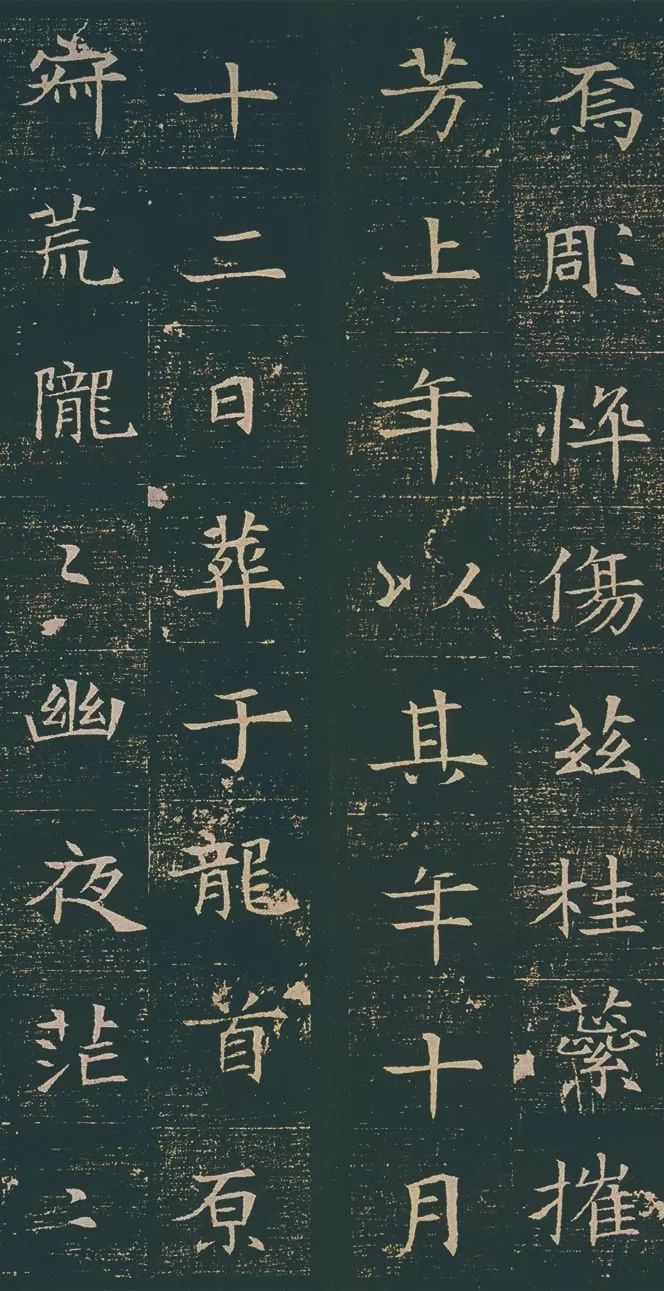 焉彫忰傷茲桂蘂摧
芳上年以其年十月
十二日葬于龍首原
寂荒隴〻幽夜茫〻